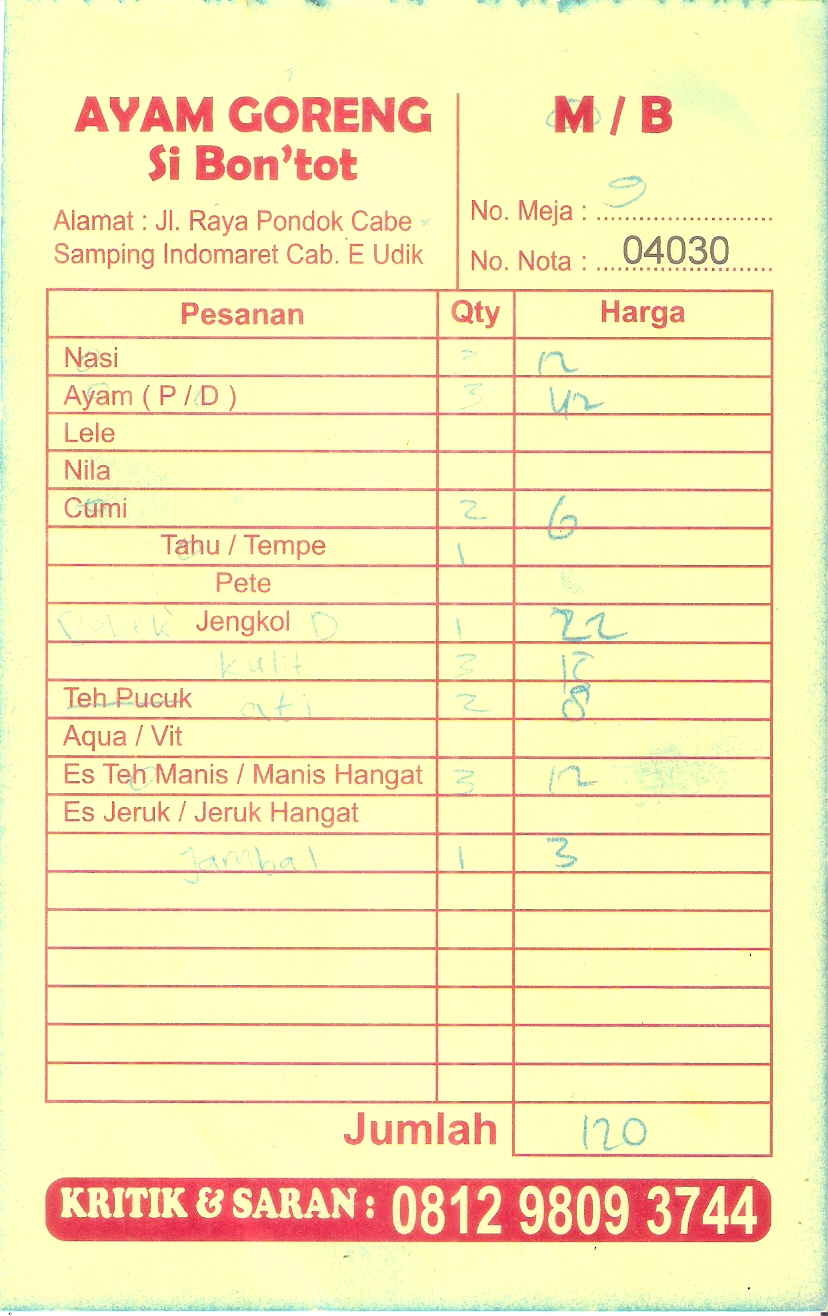 AYAM GORENG
Si Bon'tot
Alamat : Jl. Raya Pondok Cabe
Samping Indomaret Cab. E Udik
M / B
No. Meja : 9
No. Nota : 04030
Pesanan Qty Harga
Nasi 3 12
Ayam ( P / D ) 3 42
Lele
Nila
Cumi 2 6
Tahu / Tempe 1
Pete
Jengkol D 1 22
kulit 3
Teh Pucuk ati 2 8
Aqua / Vit
Es Teh Manis / Manis Hangat 3 12
Es Jeruk / Jeruk Hangat
Jambal 1 3
Jumlah 120
KRITIK & SARAN : 0812 9809 3744